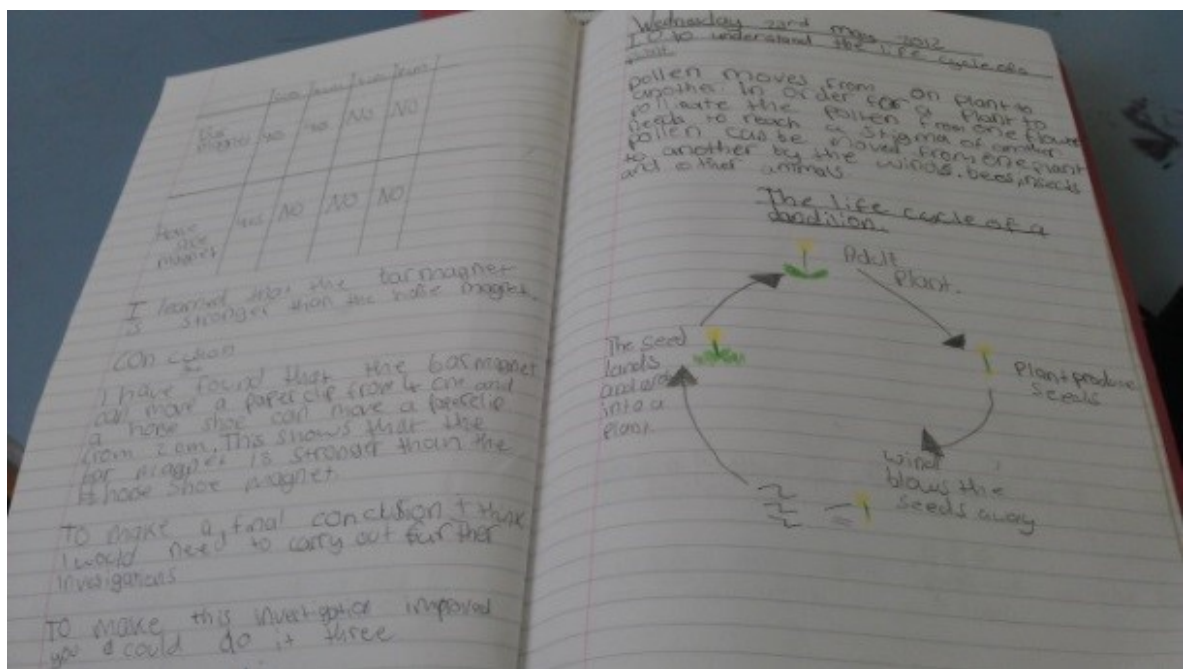 Bar magnet yes yes NO NO
horse shoe magnet yes NO NO NO
I learned that the bar magnet
is stronger than the horse magnet.
I have found that the bar magnet
can move a paperclip from 4 cm and
a horse shoe can move a paperclip
from 2 cm. This shows that the
bar magnet is stronger than the
horse shoe magnet.
TO make a final conclusion I think
I would need to carry out further
TO make this investigation improved
you could do it three
Wednesday 23rd 2012
to understand the life cycle of a
pollen moves from on plant to
another. In order for a plant to
the pollen from one flower
needs to reach a stigma of another
pollen can be moved from one plant
to another by the winds, bees, insects
and other animals
The life cycle of a
dandilion.
Adult
Plant.
Plant produce
seeds
wind
blows the
seeds away
The seed
lands
into a
plant